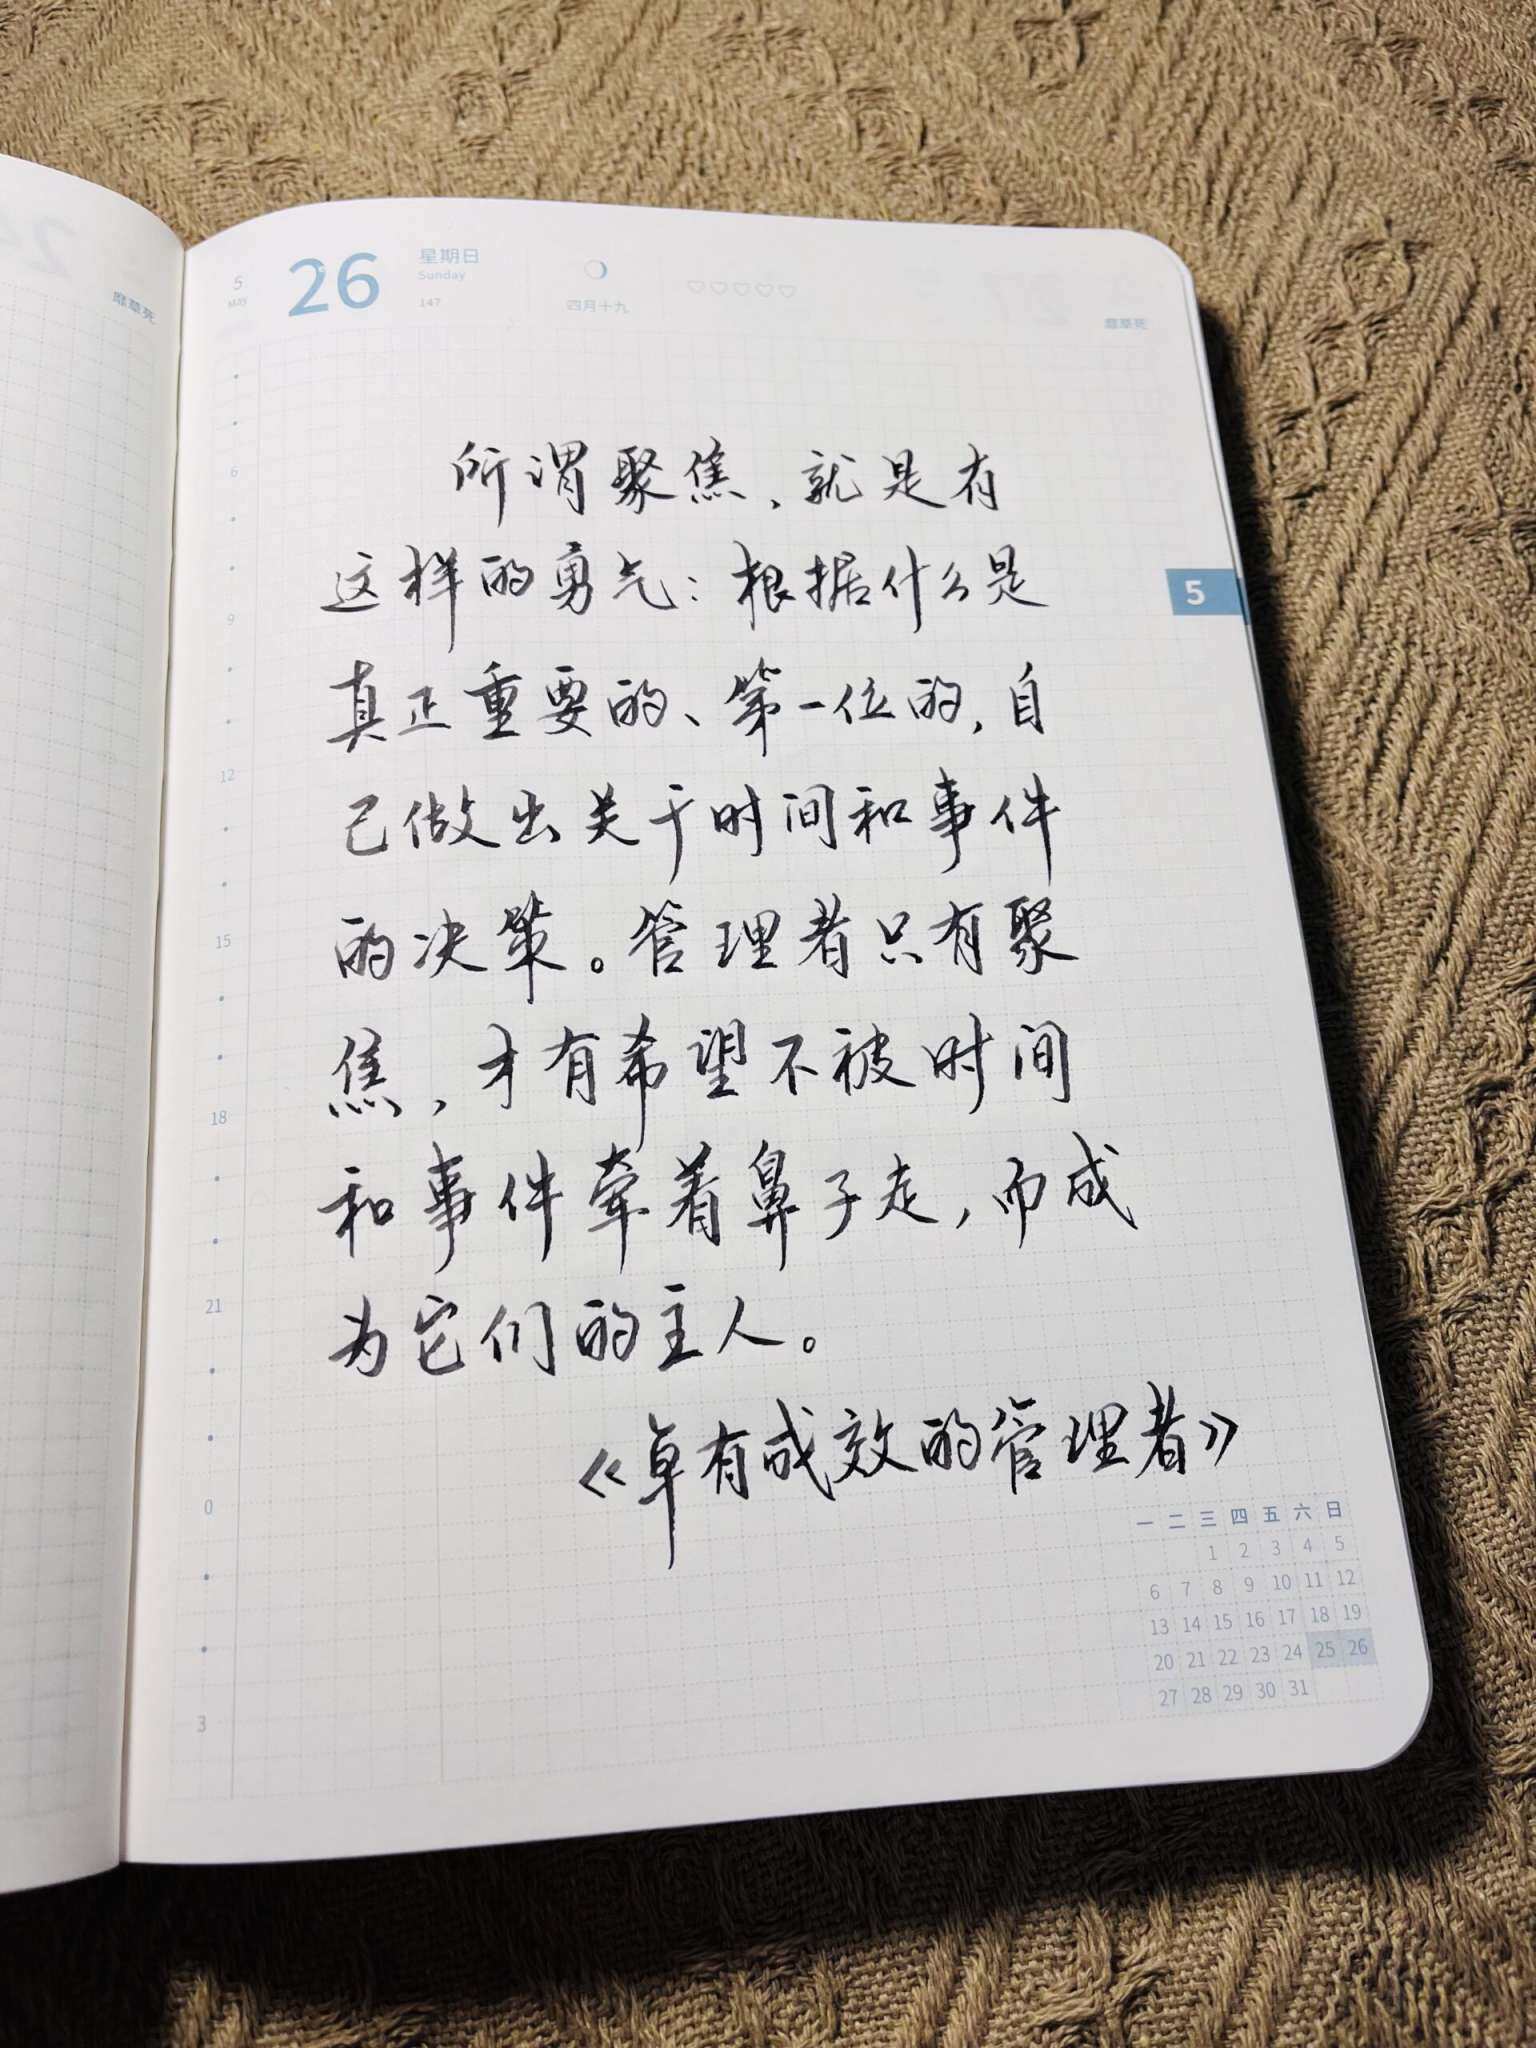 5
MAY
26
星期日
Sunday
147
四月十九
靡草死
靡草死
5
所谓聚焦，就是有
这样的勇气：根据什么是
真正重要的、第一位的，自
己做出关于时间和事件
的决策。管理者只有聚
焦，才有希望不被时间
和事件牵着鼻子走，而成
为它们的主人。
《卓有成效的管理者》
6
9
12
15
18
21
0
3
一 二 三 四 五 六 日
1 2 3 4 5
6 7 8 9 10 11 12
13 14 15 16 17 18 19
20 21 22 23 24 25 26
27 28 29 30 31